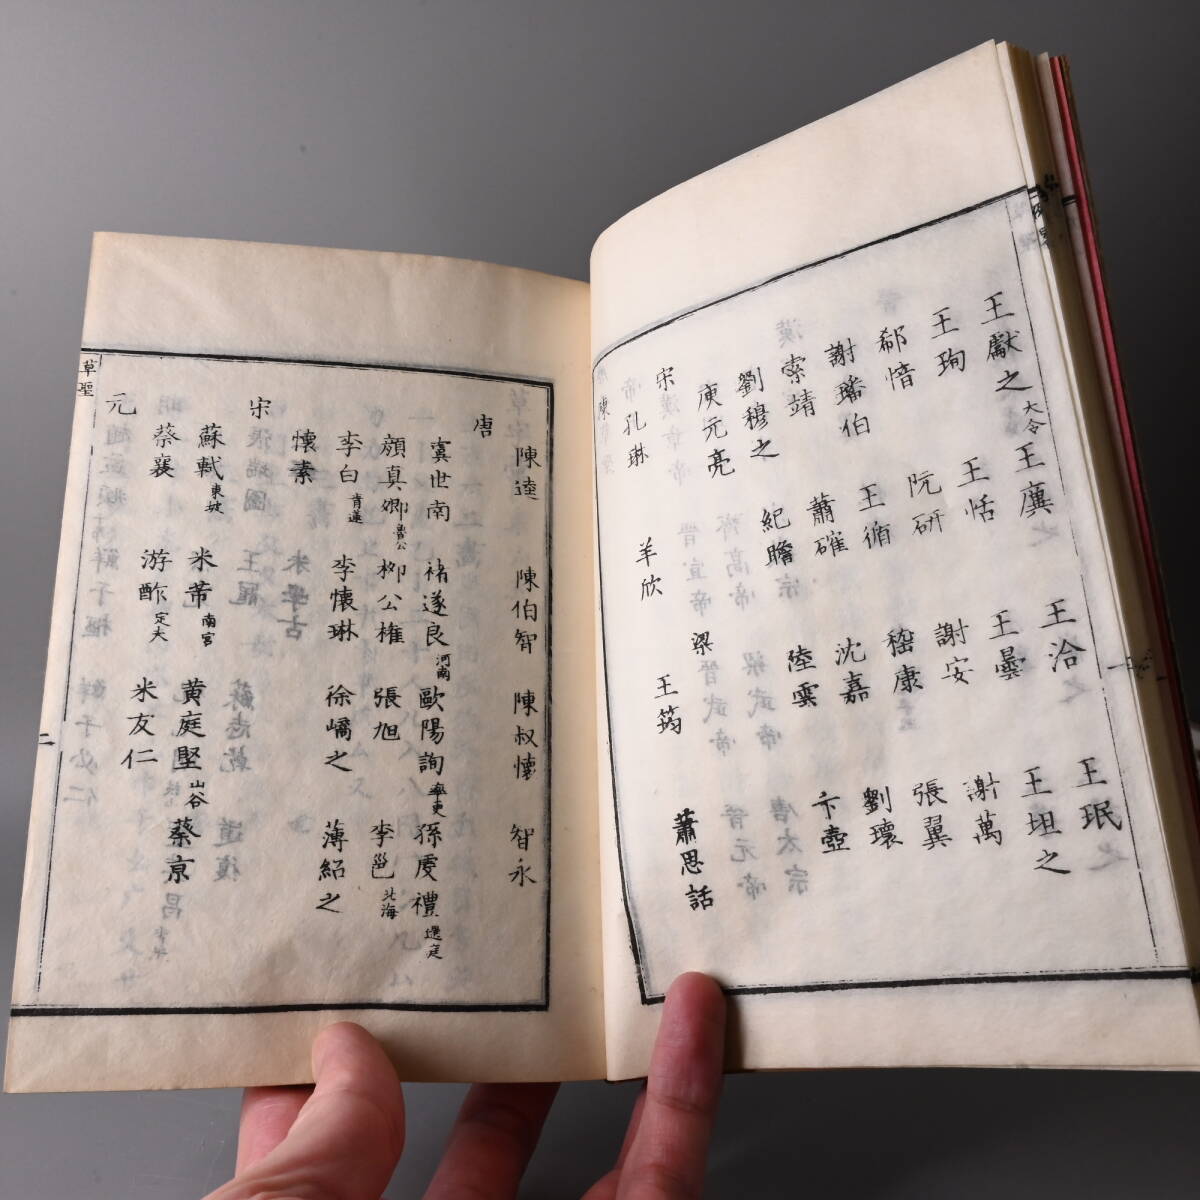 王獻之大令 王廙 王洽 王珉
王珣 王恬 王曇 王坦之
郗愔 阮研 謝安 謝萬
謝璠伯 王循 嵇康 張翼
索靖 蕭確 沈嘉 劉瓌
劉穆之 紀瞻 陸雲 卞壺
庾元亮
宋 孔琳 羊欣 梁 王筠 蕭思話
陳
陳逵 陳伯智 陳叔懷 智永
唐
虞世南 褚遂良河南 歐陽詢率更 孫虔禮過庭
顏真卿魯公 柳公權 張旭 李邕北海
李白青蓮 李懷琳 徐嶠之 薄紹之
懷素
宋
蘇軾東坡 米芾南宮 黃庭堅山谷 蔡京
蔡襄 游酢定夫 米友仁
元
草聖
二